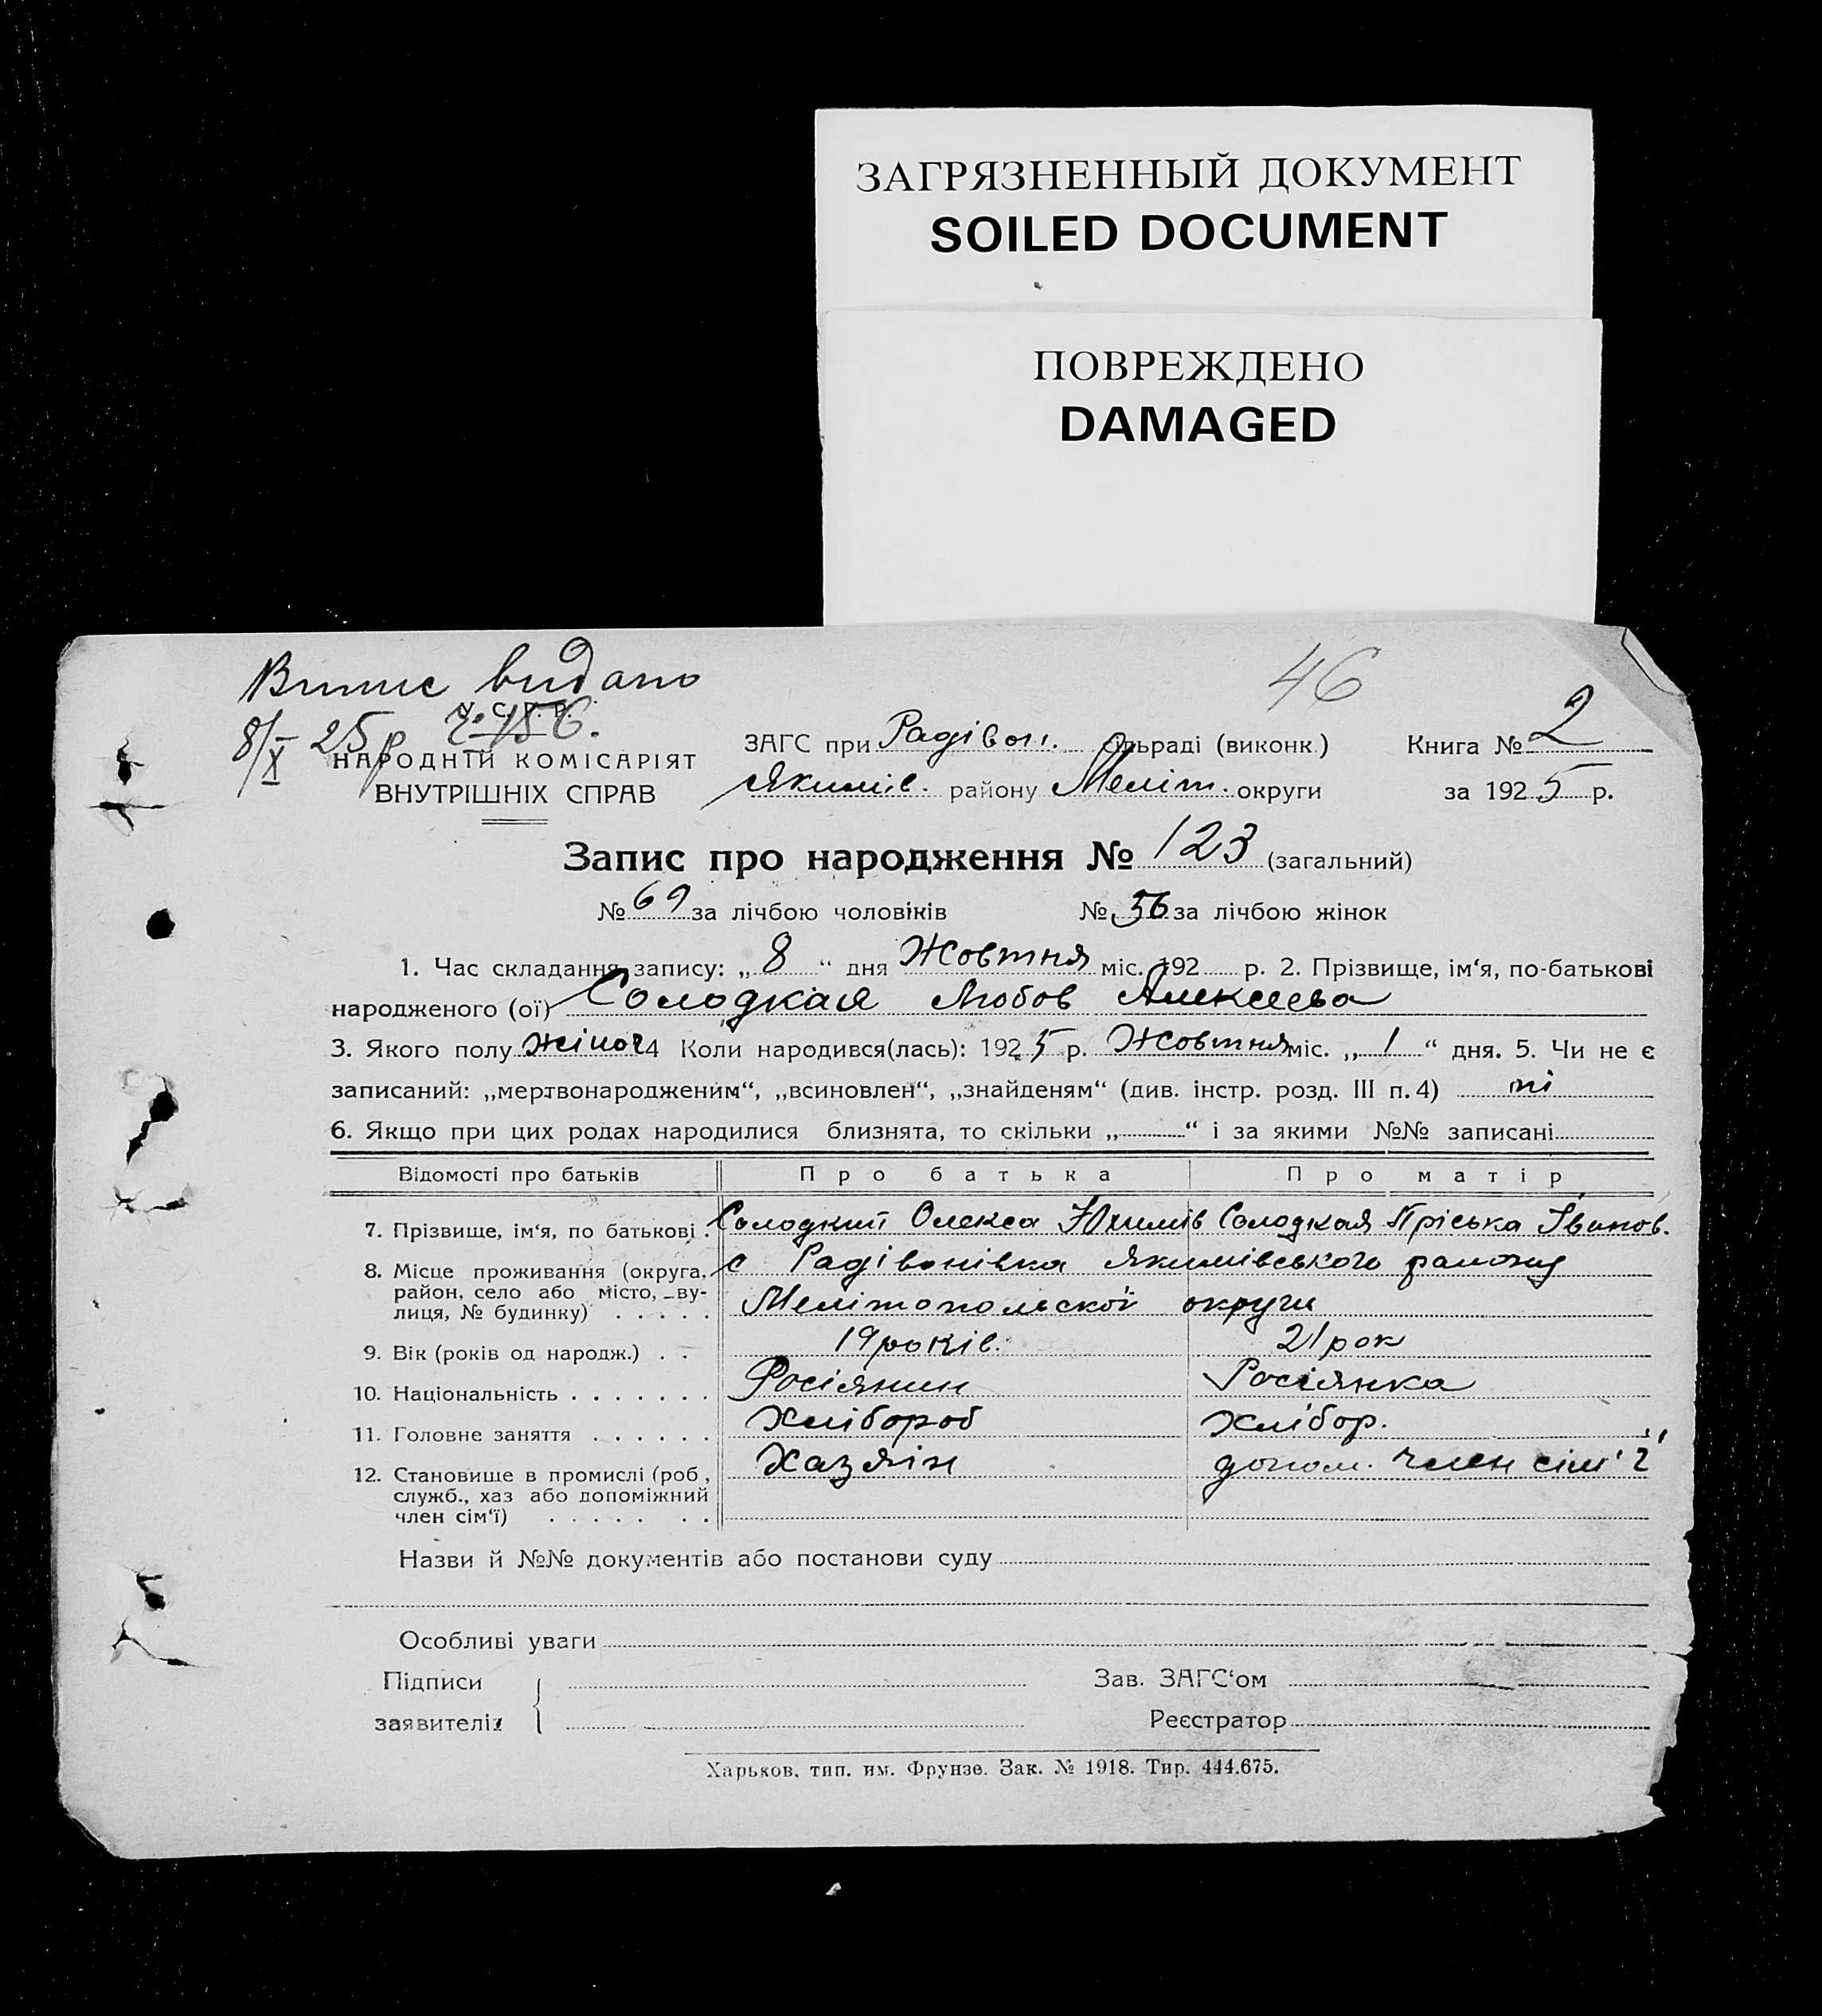 ЗАГРЯЗНЕННЫЙ ДОКУМЕНТ
SOILED DOCUMENT
ПОВРЕЖДЕНО
DAMAGED
Випис видано
46
8/X 25 р 156.
У. С. Р. Р.
НАРОДНІЙ КОМІСАРІЯТ
ВНУТРІШНІХ СПРАВ
ЗАГС при Радівон. сільраді (виконк.) Книга № 2
Якимів. району Меліт. округи за 1925 р.
Запис про народження № 123 (загальний)
№ 69 за лічбою чоловіків № 56 за лічбою жінок
1. Час складання запису: „8“ дня Жовтня міс. 192 р. 2. Прізвище, ім‘я, по-батькові
народженого (ої) Солодкая Любов Алексеева
3. Якого полу жіноч 4 Коли народився(лась): 1925 р. Жовтня міс. „1“ дня. 5. Чи не є
записаний: „мертвонародженим“, „всиновлен“, „знайденям“ (див. інстр. розд. III п. 4) ні
6. Якщо при цих родах народилися близнята, то скільки „ “ і за якими №№ записані
Відомості про батьків Про батька Про матір
7. Прізвище, ім‘я, по батькові . Солодкий Олекса Юхимів Солодкая Пріська Іванов.
8. Місце проживання (округа, район, село або місто, вулиця, № будинку) . . . . .
с Радівонівка Якимівського району
Мелітопольскої округи
9. Вік (років од народж.) . . 19 років. 21 рок
10. Національність . . . . . . . Росіянин Росіянка
11. Головне заняття . . . . . . Хлібороб Хлібор.
12. Становище в промислі (роб, служб., хаз або допоміжний член сім‘ї) . . . . . . . Хазяін допом. член сім'ї
Назви й №№ документів або постанови суду
Особливі уваги
Підписи Зав. ЗАГС‘ом
заявителів Реєстратор
Харьков, тип. им. Фрунзе. Зак. № 1918. Тир. 444.675.